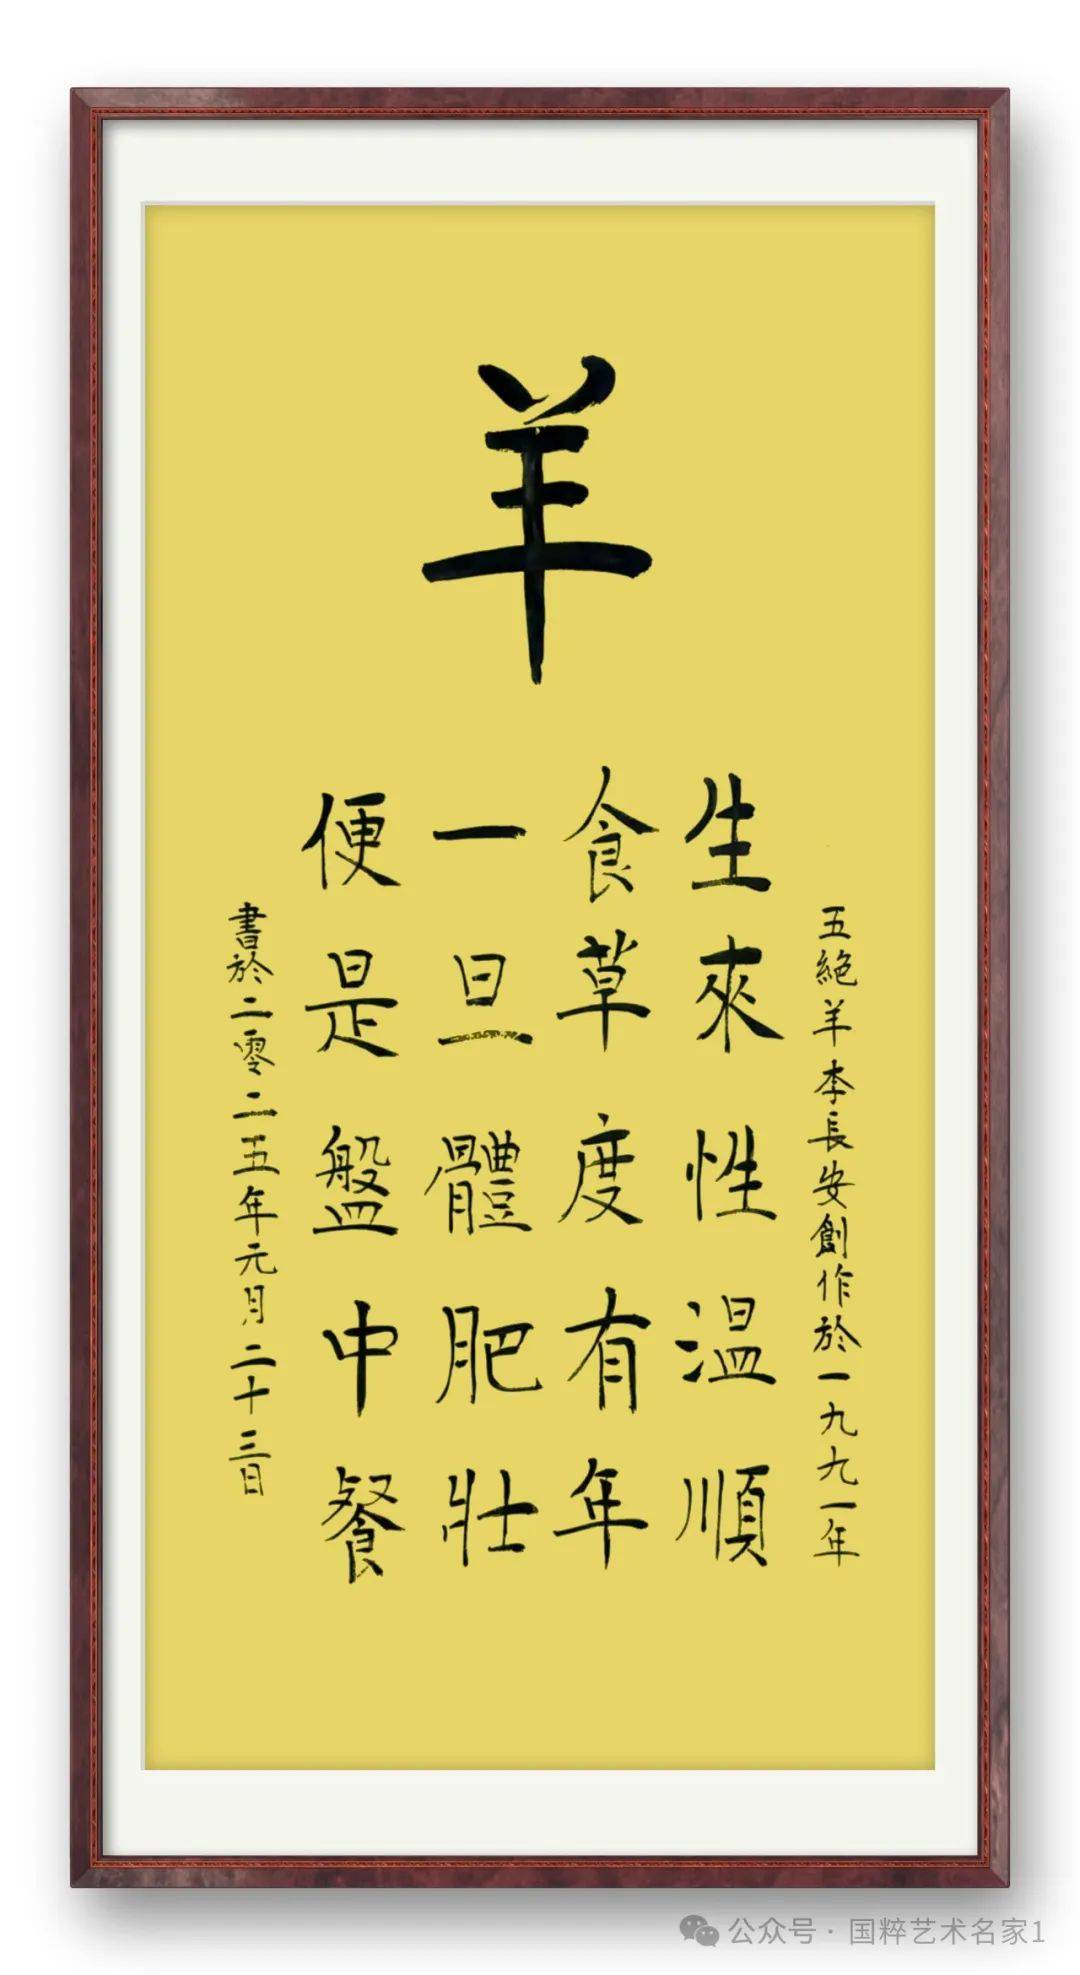 羊
五絕羊李長安創作於一九九一年
生來性温順
食草度有年
一旦體肥壯
便是盤中餐
書於二零二五年元月二十三日
公众号 · 国粹艺术名家1